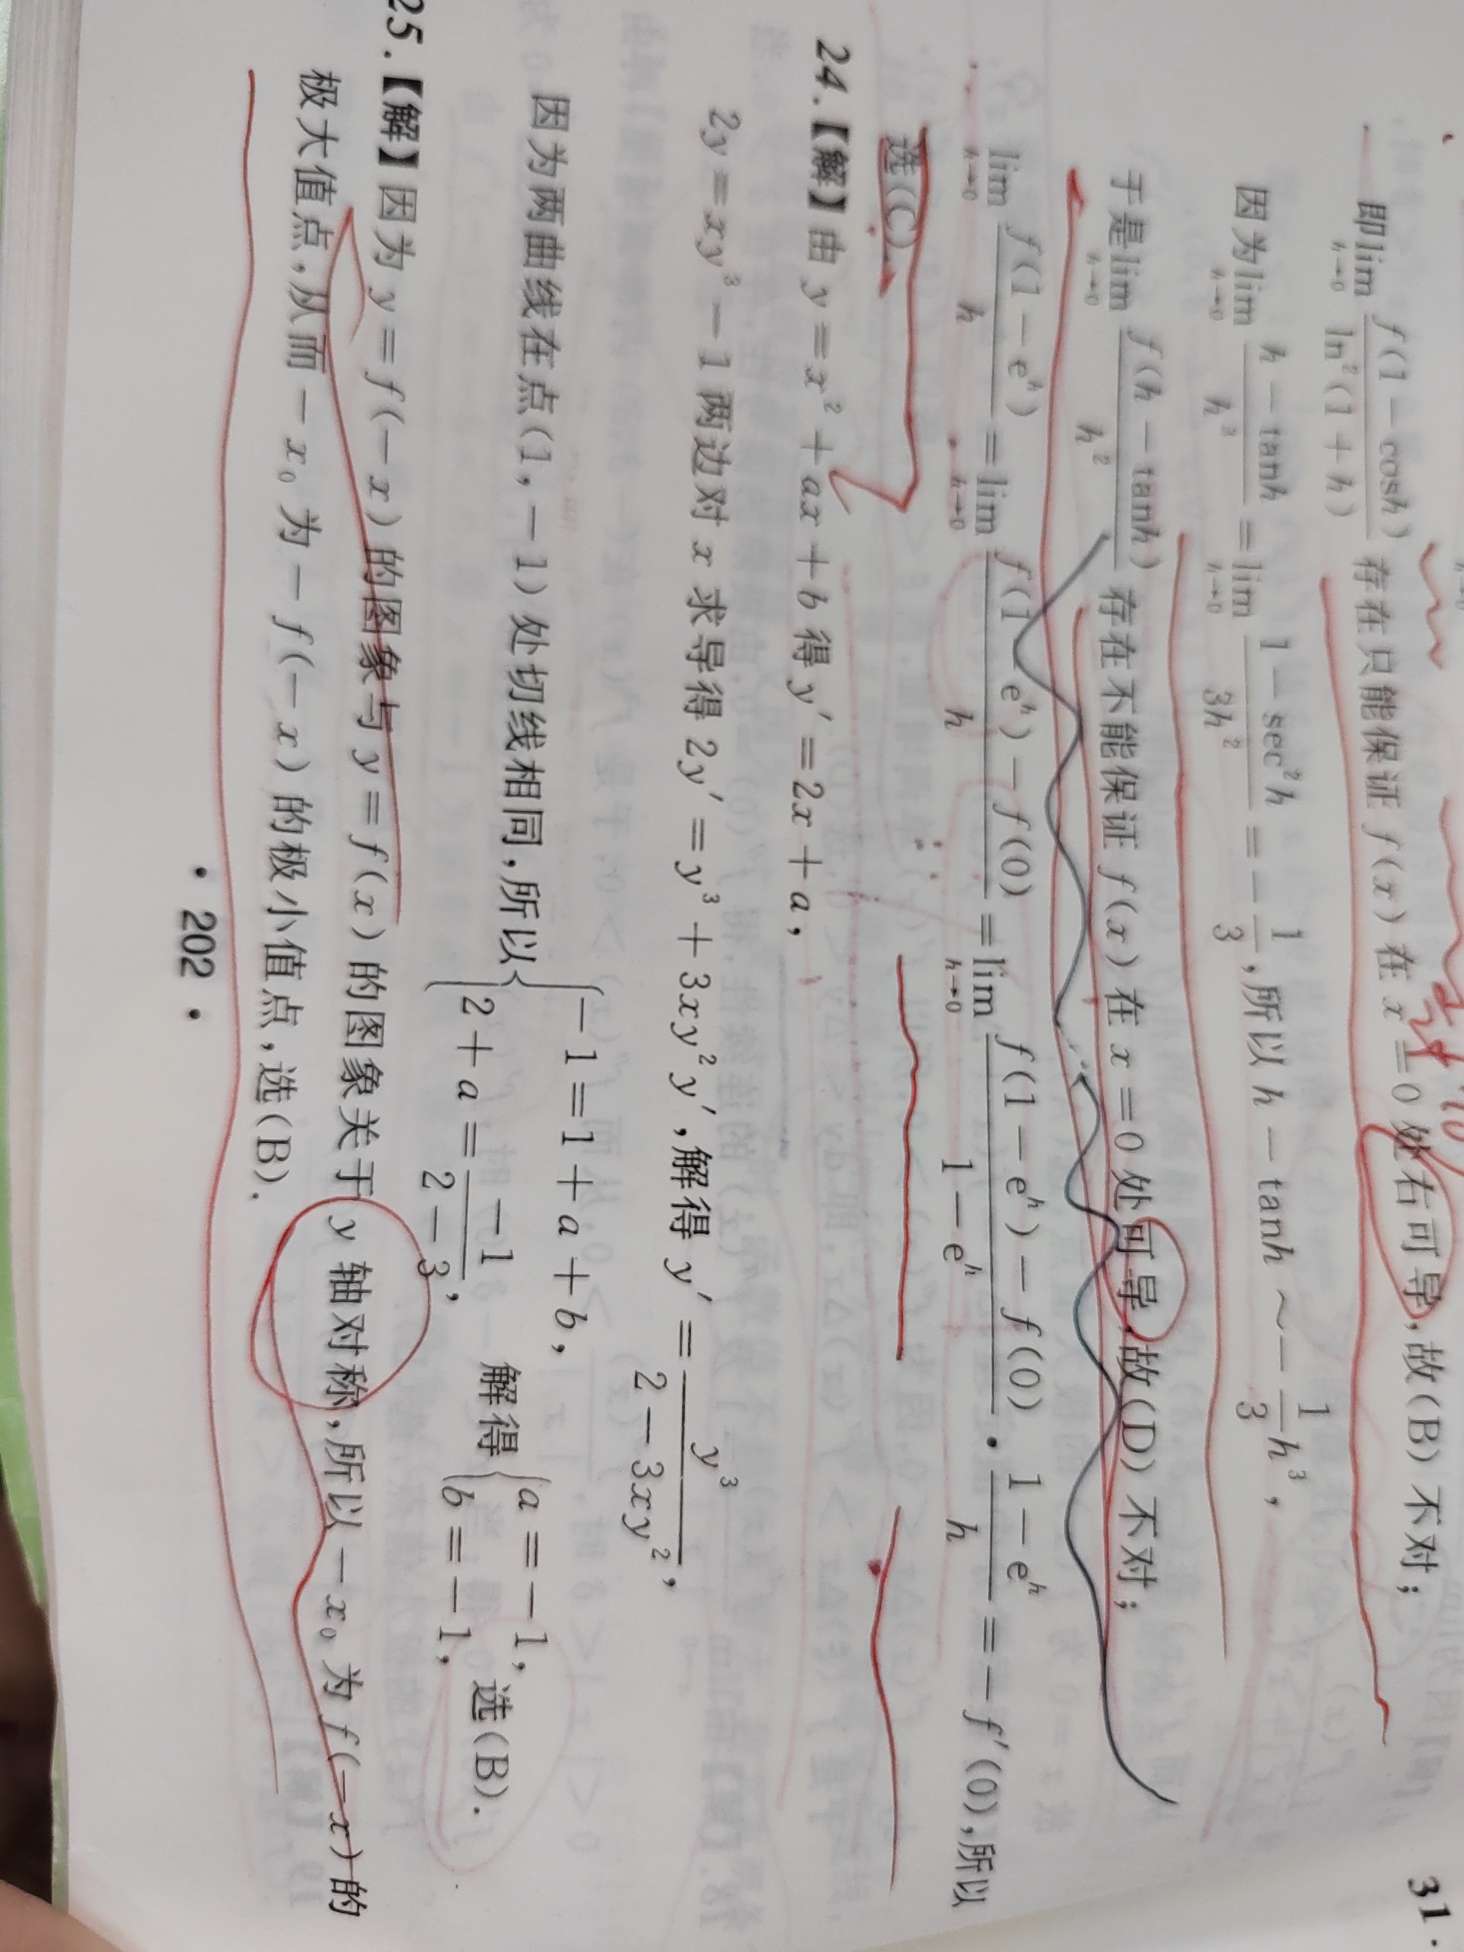 31.
即lim h→0 f(1-cosh)/ln²(1+h) 存在只能保证 f(x) 在 x=0 处右可导,故(B) 不对;
因为lim h→0 (h-tanh)/h³ = lim h→0 (1-sec²h)/3h² = -1/3,所以 h-tanh ~ -1/3 h³,
于是lim h→0 f(h-tanh)/h² 存在不能保证 f(x) 在 x=0 处可导,故(D) 不对;
lim h→0 f(1-eʰ)/h = lim h→0 (f(1-eʰ)-f(0))/h = lim h→0 (f(1-eʰ)-f(0))/(1-eʰ) · (1-eʰ)/h = -f′(0),所以
选(C).
24.【解】由 y=x²+ax+b 得 y′=2x+a,
2y=xy³-1 两边对 x 求导得 2y′=y³+3xy²y′,解得 y′=y³/(2-3xy²),
因为两曲线在点(1,-1) 处切线相同,所以{-1=1+a+b, 2+a=-1/(2-3), 解得{a=-1, b=-1, 选(B).
25.【解】因为 y=f(-x) 的图象与 y=f(x) 的图象关于 y 轴对称,所以 -x₀ 为 f(-x) 的
极大值点,从而 -x₀ 为 -f(-x) 的极小值点,选(B).
· 202 ·